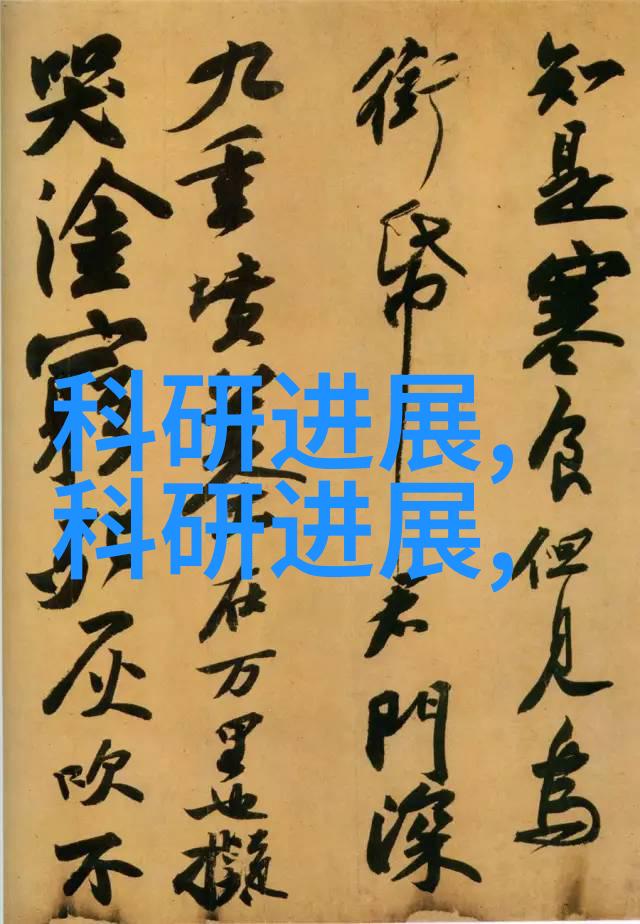 知是寒食但見烏
銜帋君門深
九重墳墓在万里也擬
哭塗窮灰吹不
科研进展,
科研进展,